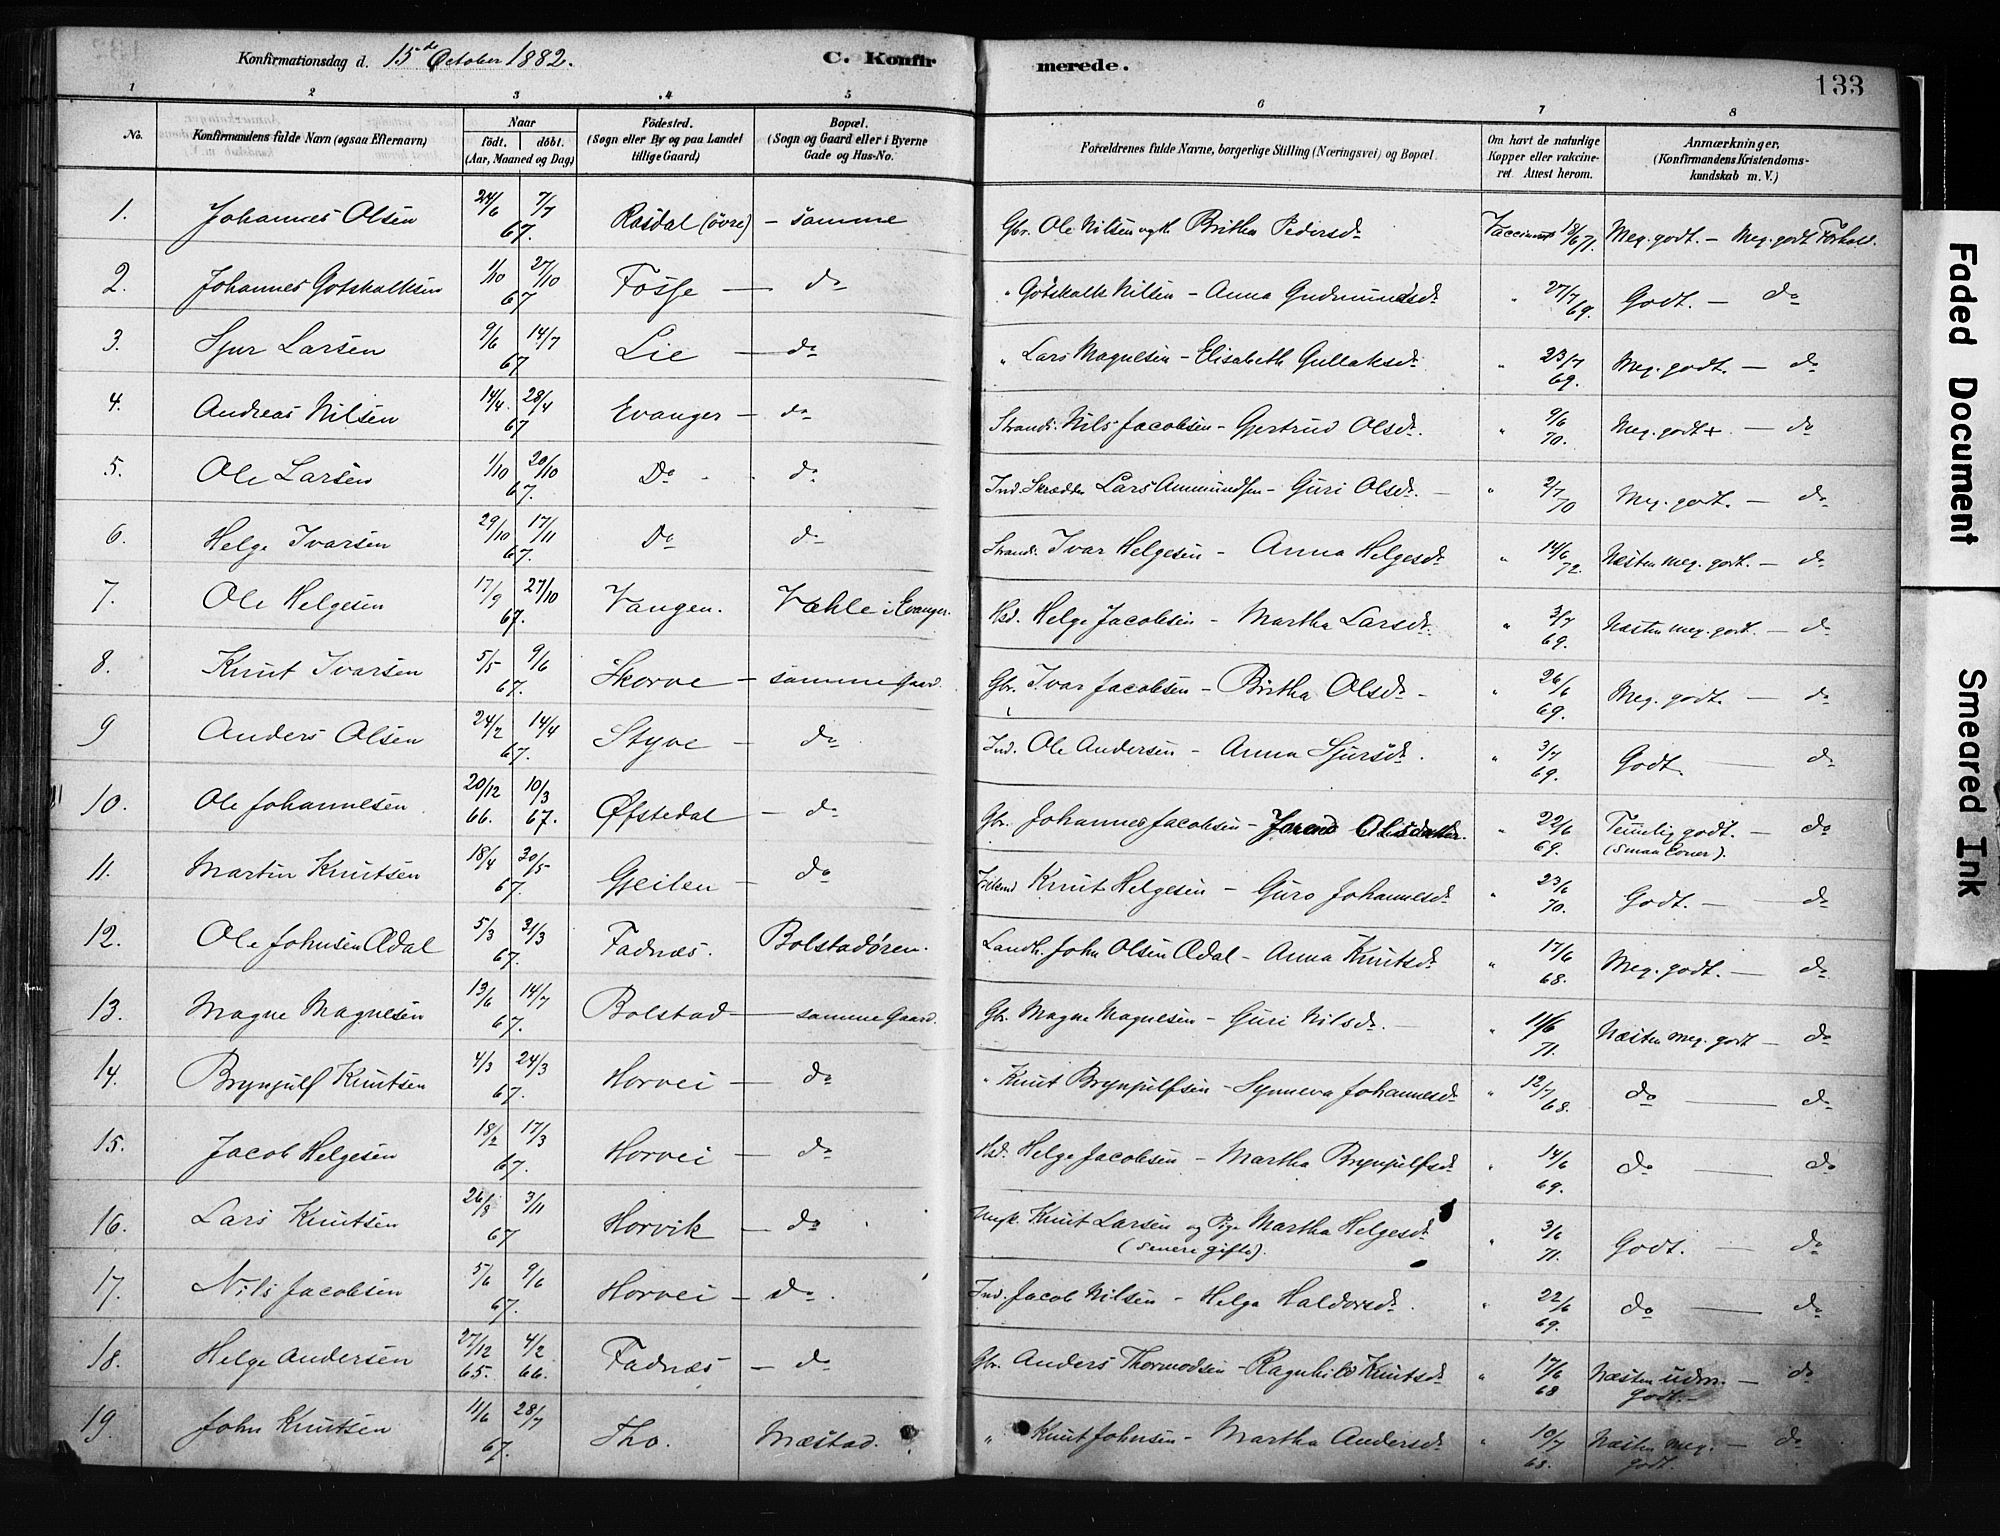 Konfirmationsdag d. 15de October 1882. C. Konfirmerede. 133
1 2 3 4 5 6 7 8
No. Konfirmandens fulde Navn (ogsaa Efternavn) Naar født. døbt. (Aar, Maaned og Dag) Fødested. (Sogn eller By og paa Landet tillige Gaard) Bopæl. (Sogn og Gaard eller i Byerne Gade og Hus-No. Forældrenes fulde Navne, borgerlige Stilling (Næringsvei) og Bopæl. Om havt de naturlige Kopper eller vakcineret. Attest herom. Anmærkninger. (Konfirmandens Kristendomskundskab m. V.)
1. Johannes Olsen 24/6 7/7 67. Rasdal (øvre) – samme Gbr. Ole Nilsen og H. Britha Pedersdr Vaccineret 18/6 71. Meg. godt. – Meg. godt Forhold.
2. Johannes Gotskalksen 1/10 27/10 67 Fosse – do " Gotskalk Nilsen – Anna Gudmundsdr " 27/7 69. Godt. – do
3. Sjur Larsen 9/6 14/7 67 Lie – do " Lars Magnesen – Elisabeth Gullaksdr " 23/7 69. Meg. godt. – do
4. Andreas Nilsen 14/4 28/4 67 Evanger – do Strands. Nils Jacobsen – Gjertrud Olsdr. " 9/6 70. Meg. godt + – do
5. Ole Larsen 1/10 20/10 67. Do do Ind. Skrædder Lars Ammundsen – Guri Olsdr. – " 2/7 70 Meg. godt. – do
6. Helge Ivarsen 29/10 17/11 67. Do do Strands. Ivar Helgesen – Anna Helgesdr " 14/6 72. Næsten meg. godt. – do
7. Ole Helgesen 17/9 27/10 67. Vangen. Væhle i Evanger. Hsd. Helge Jacobsen – Martha Larsdr. " 3/7 69. Næsten meg. godt. – do
8. Knut Ivarsen 5/5 9/6 67. Skorve – samme Gaard. Gbr. Ivar Jacobsen – Britha Olsdr – " 26/6 69. Meg. godt. – do
9 Anders Olsen 24/2 14/4 67. Styve – do Ind. Ole Andersen – Anna Sjursdr. " 3/7 69. Godt. – do
10. Ole Johannesen 20/12 66. 10/3 67. Øfstedal – do Gbr. Johannes Jacobsen – Jorend Olsdatter. " 22/6 69. Temlig godt. – do
(smaa Evner).
11. Martin Knutsen 18/4 30/5 67. Gjeilen – do Knut Helgesen – Guro Johannesdr " 23/6 70. Godt. – do
12. Ole Johnsen Ædal 5/3 31/3 67. Fadnæs. Bolstadøren. Landh. John Olsen Ædal – Anna Knutsdr " 17/6 68. Meg. godt. – do
13. Magne Magnesen 13/6 14/7 67. Bolstad – samme Gaard. Gbr. Magne Magnesen – Guri Nilsdr. – " 11/6 71. Næsten meg. godt – do
14. Brynjulf Knutsen 4/3 24/3 67. Horvei – do " Knut Brynjulfsen – Synneva Johannesdr " 12/7 68. do – do
15. Jacob Helgesen 18/2 17/3 67. Horvei – do Hsd. Helge Jacobsen – Martha Brynjulfsdr " 14/6 69. do – do
16. Lars Knutsen 26/8 3/11 67 Horvik – do Ungk. Knut Larsen og Pige Martha Helgesdr " 3/6 71. Godt. – do
(senere gifte).
17. Nils Jacobsen 5/6 9/6 67. Horvei – do. Ind. Jacob Nilsen – Helga Haldorsdr. " 22/6 69. do – do
18. Helge Andersen 27/12 65. 4/2 66. Fadnæs – do Gbr. Anders Thormodsen – Ragnhild Knutsdr " 17/6 68 Næsten udm. godt. – do
19. John Knutsen 11/6 28/7 67. Tho. Mæstad. " Knut Johnsen – Martha Andersdr " 10/7 68. Næsten meg. godt. – do
Faded Document
Smeared Ink